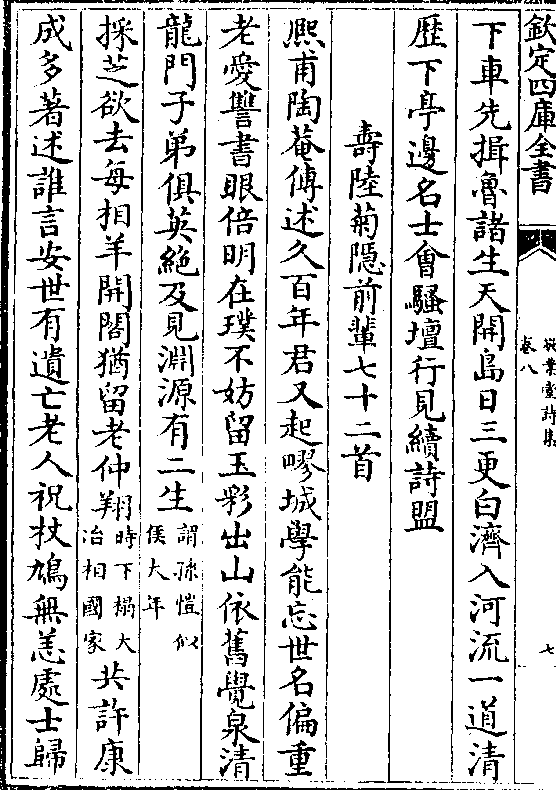 欽定四庫全書
敬業堂詩集
卷八
七
下車先揖魯諸生天開島日三更白濟入河流一道清
歴下亭邊名士會騷壇行見續詩盟
壽陸菊隱前輩七十二首
熈甫陶菴傳述久百年君又起疁城學能忘世名偏重
老愛讐書眼倍明在璞不妨留玉彩出山依舊覺泉清
龍門子弟俱英絶及見淵源有二生謂孫愷似
侯大年
採芝欲去每相羊開閤猶留老仲翔時下榻大
治相國家共許康
成多著述誰言安世有遺亡老人祝杖鳩無恙處士歸